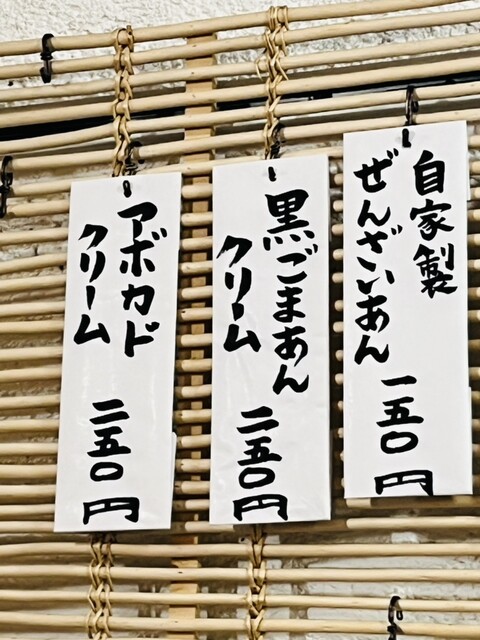 自家製
ぜんざいあん
一五〇円
黒ごまあん
クリーム
二五〇円
アボカド
クリーム
二五〇円